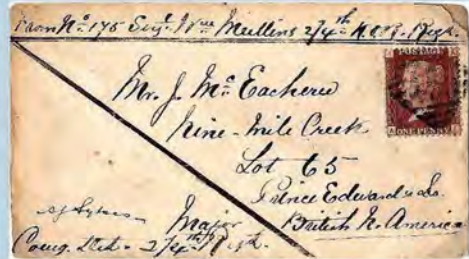 From No. 175 Sergt. Wm Mullins 2/4th K.O.R. Regt.
Mr. J. Mc Eachern
Nine-Mile Creek
Lot 65
Prince Edward's Is.
British N. America
Major
Comg. Det. 2/4th Regt.
ONE PENNY